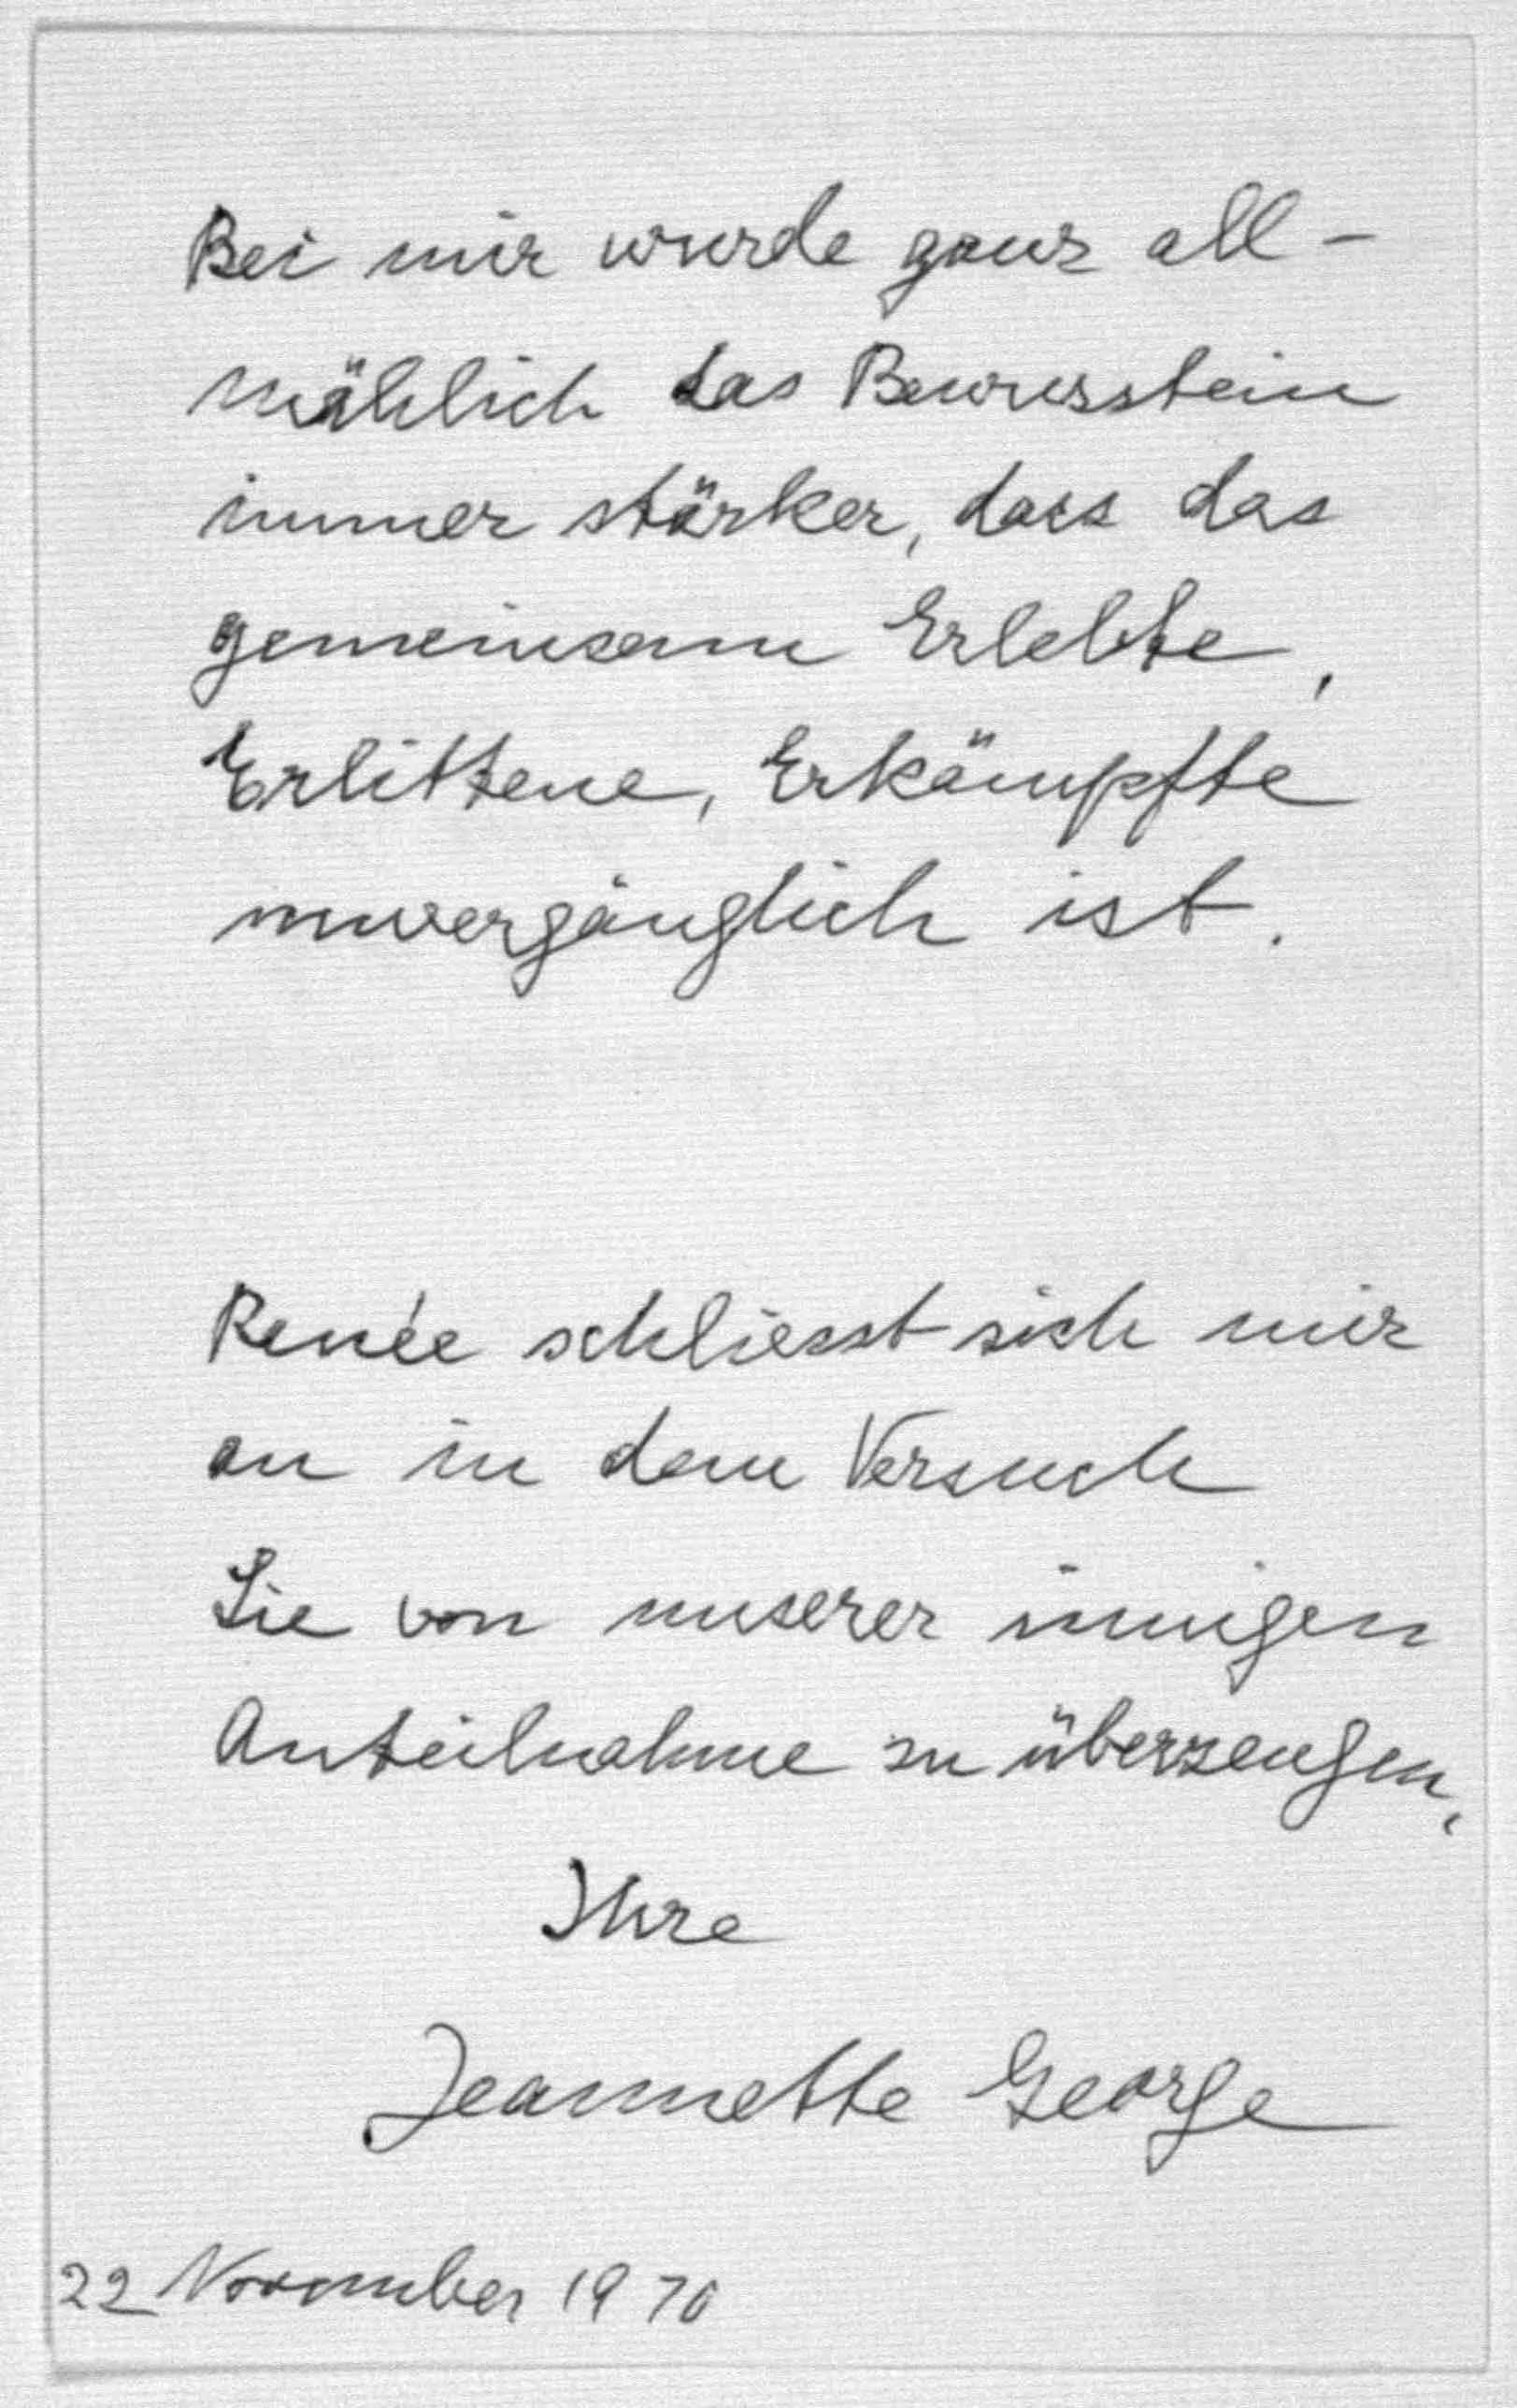 Bei mir wurde ganz all-
mählich das Bewusstein
immer stärker, dass das
gemeinsam Erlebte,
Erlittene, Erkämpfte
unvergänglich ist.
Renée schliesst sich mir
an in dem Versuch
Sie von unserer innigen
Anteilnahme zu überzeugen,
Ihre
Jeannette George
22 November 1970